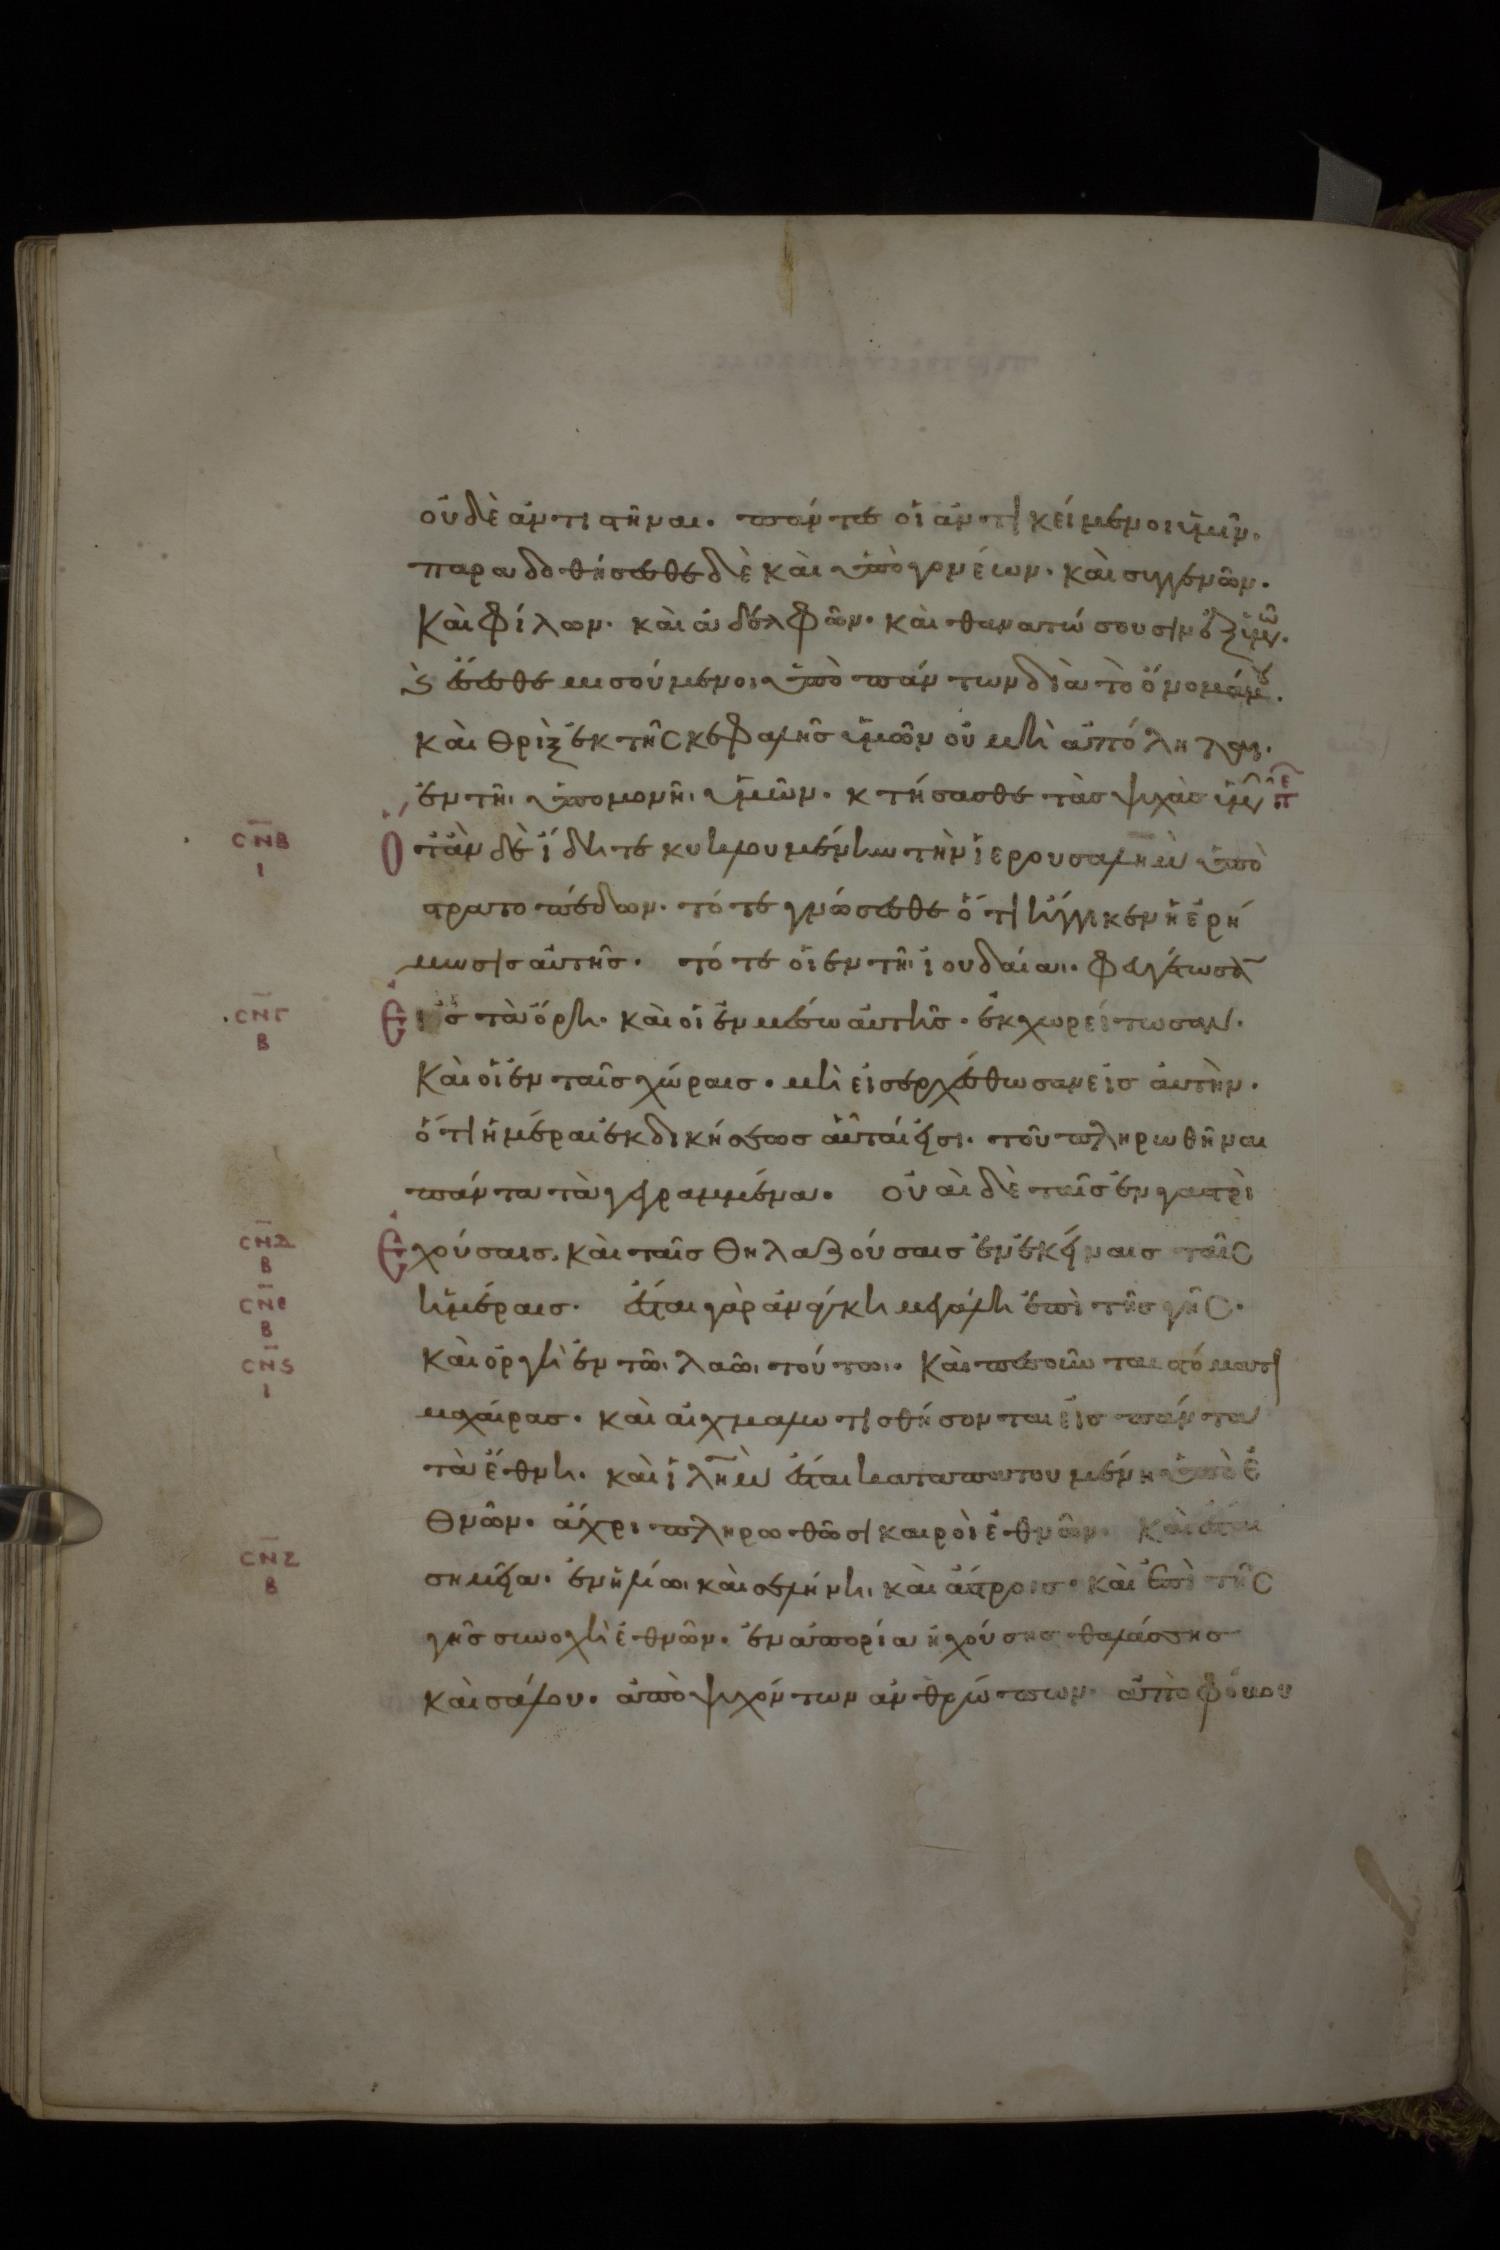 οὐδὲ ἀντιστῆναι. πάντες οἱ ἀντικείμενοι ὑμῖν.
παραδοθήσεσθε δὲ καὶ ὑπὸ γονέων. καὶ συγγενῶν.
Καὶ φίλων. καὶ ἀδελφῶν. καὶ θανατώσουσιν ἐξ ὑμῶν.
ϗ ἔσεσθε μισούμενοι ὑπὸ πάντων διὰ τὸ ὄνομά μου.
καὶ θρὶξ ἐκ τῆς κεφαλῆς ὑμῶν οὐ μὴ ἀπόληται.
ἐν τῆι ὑπομονῆι ὑμῶν. κτήσασθε τὰς ψυχὰς ὑμῶν
CΝΒ Ι
Ὁταν δὲ ἴδητε κυκλουμένην τὴν ἱερουσαλὴμ ὑπὸ
στρατοπέδων. τότε γνώσεσθε ὅτι ἤγγικεν ἡ ἐρή
μωσις αὐτῆς. τότε οἱ ἐν τῆι ἰουδαίαι. φευγέτωσαν
CΝΓ Β
Εἰς τὰ ὄρη. καὶ οἱ ἐν μέσω αὐτῆς. ἐκχωρείτωσαν.
Καὶ οἱ ἐν ταῖς χώραις. μὴ εἰσερχέσθωσαν εἰς αὐτὴν.
ὅτι ἡμέραι ἐκδικήσεως αὗταί εἰσι. τοῦ πληρωθῆναι
πάντα τὰ γεγραμμένα. οὐαὶ δὲ ταῖς ἐν γαστρὶ
CΝΔ Β
Ἐχούσαις. καὶ ταῖς θηλαζούσαις ἐν ἐκείναις ταῖς
CΝΕ Β
ἡμέραις. ἔσται γὰρ ἀνάγκη μεγάλη ἐπὶ τῆς γῆς.
CΝS Ι
Καὶ ὀργὴ ἐν τῶι λαῶι τούτωι. Καὶ πεσοῦνται στόματι
μαχαίρας. καὶ αἰχμαλωτισθήσονται εἰς πάντα
τὰ ἔθνη. καὶ ἰλὴμ ἔσται πατουμένη ὑπὸ ἐ
θνῶν. ἄχρι πληρωθῶσι καιροὶ ἐθνῶν. Καὶ ἔσται
CΝΖ Β
σημεῖα. ἐν ἡλίω. καὶ σελήνη. καὶ ἄστροις. καὶ ἐπὶ τῆς
γῆς συνοχὴ ἐθνῶν. ἐν ἀπορία ἠχούσης θαλάσσης
καὶ σάλου. ἀποψυχόντων ἀνθρώπων ἀπὸ φόβου